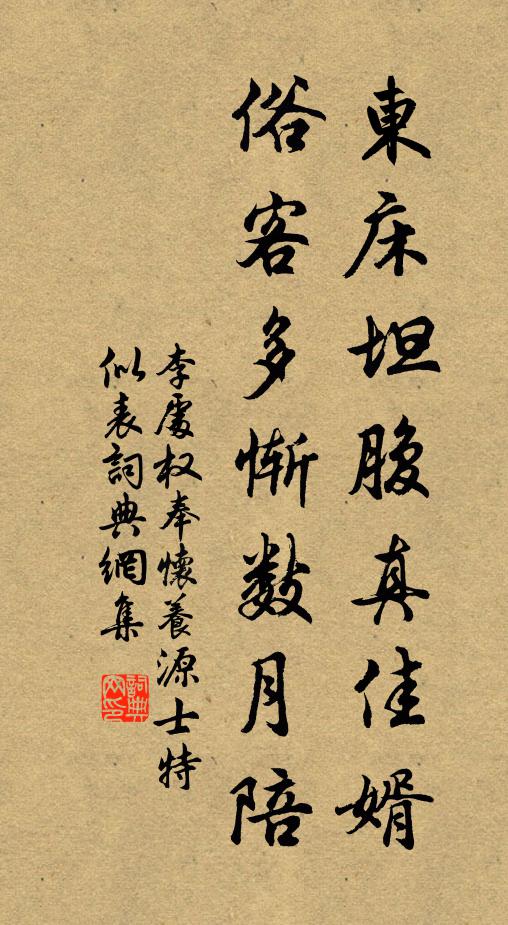 東床坦腹真佳婿
俗客多慚数月陪
李處权奉懷養源士特
似表詞典網集
詞典网印